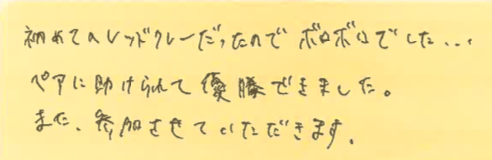 初めてのレッドクレーだったので ボロボロでした...
ペアに助けられて優勝できました。
また、参加させていただきます。